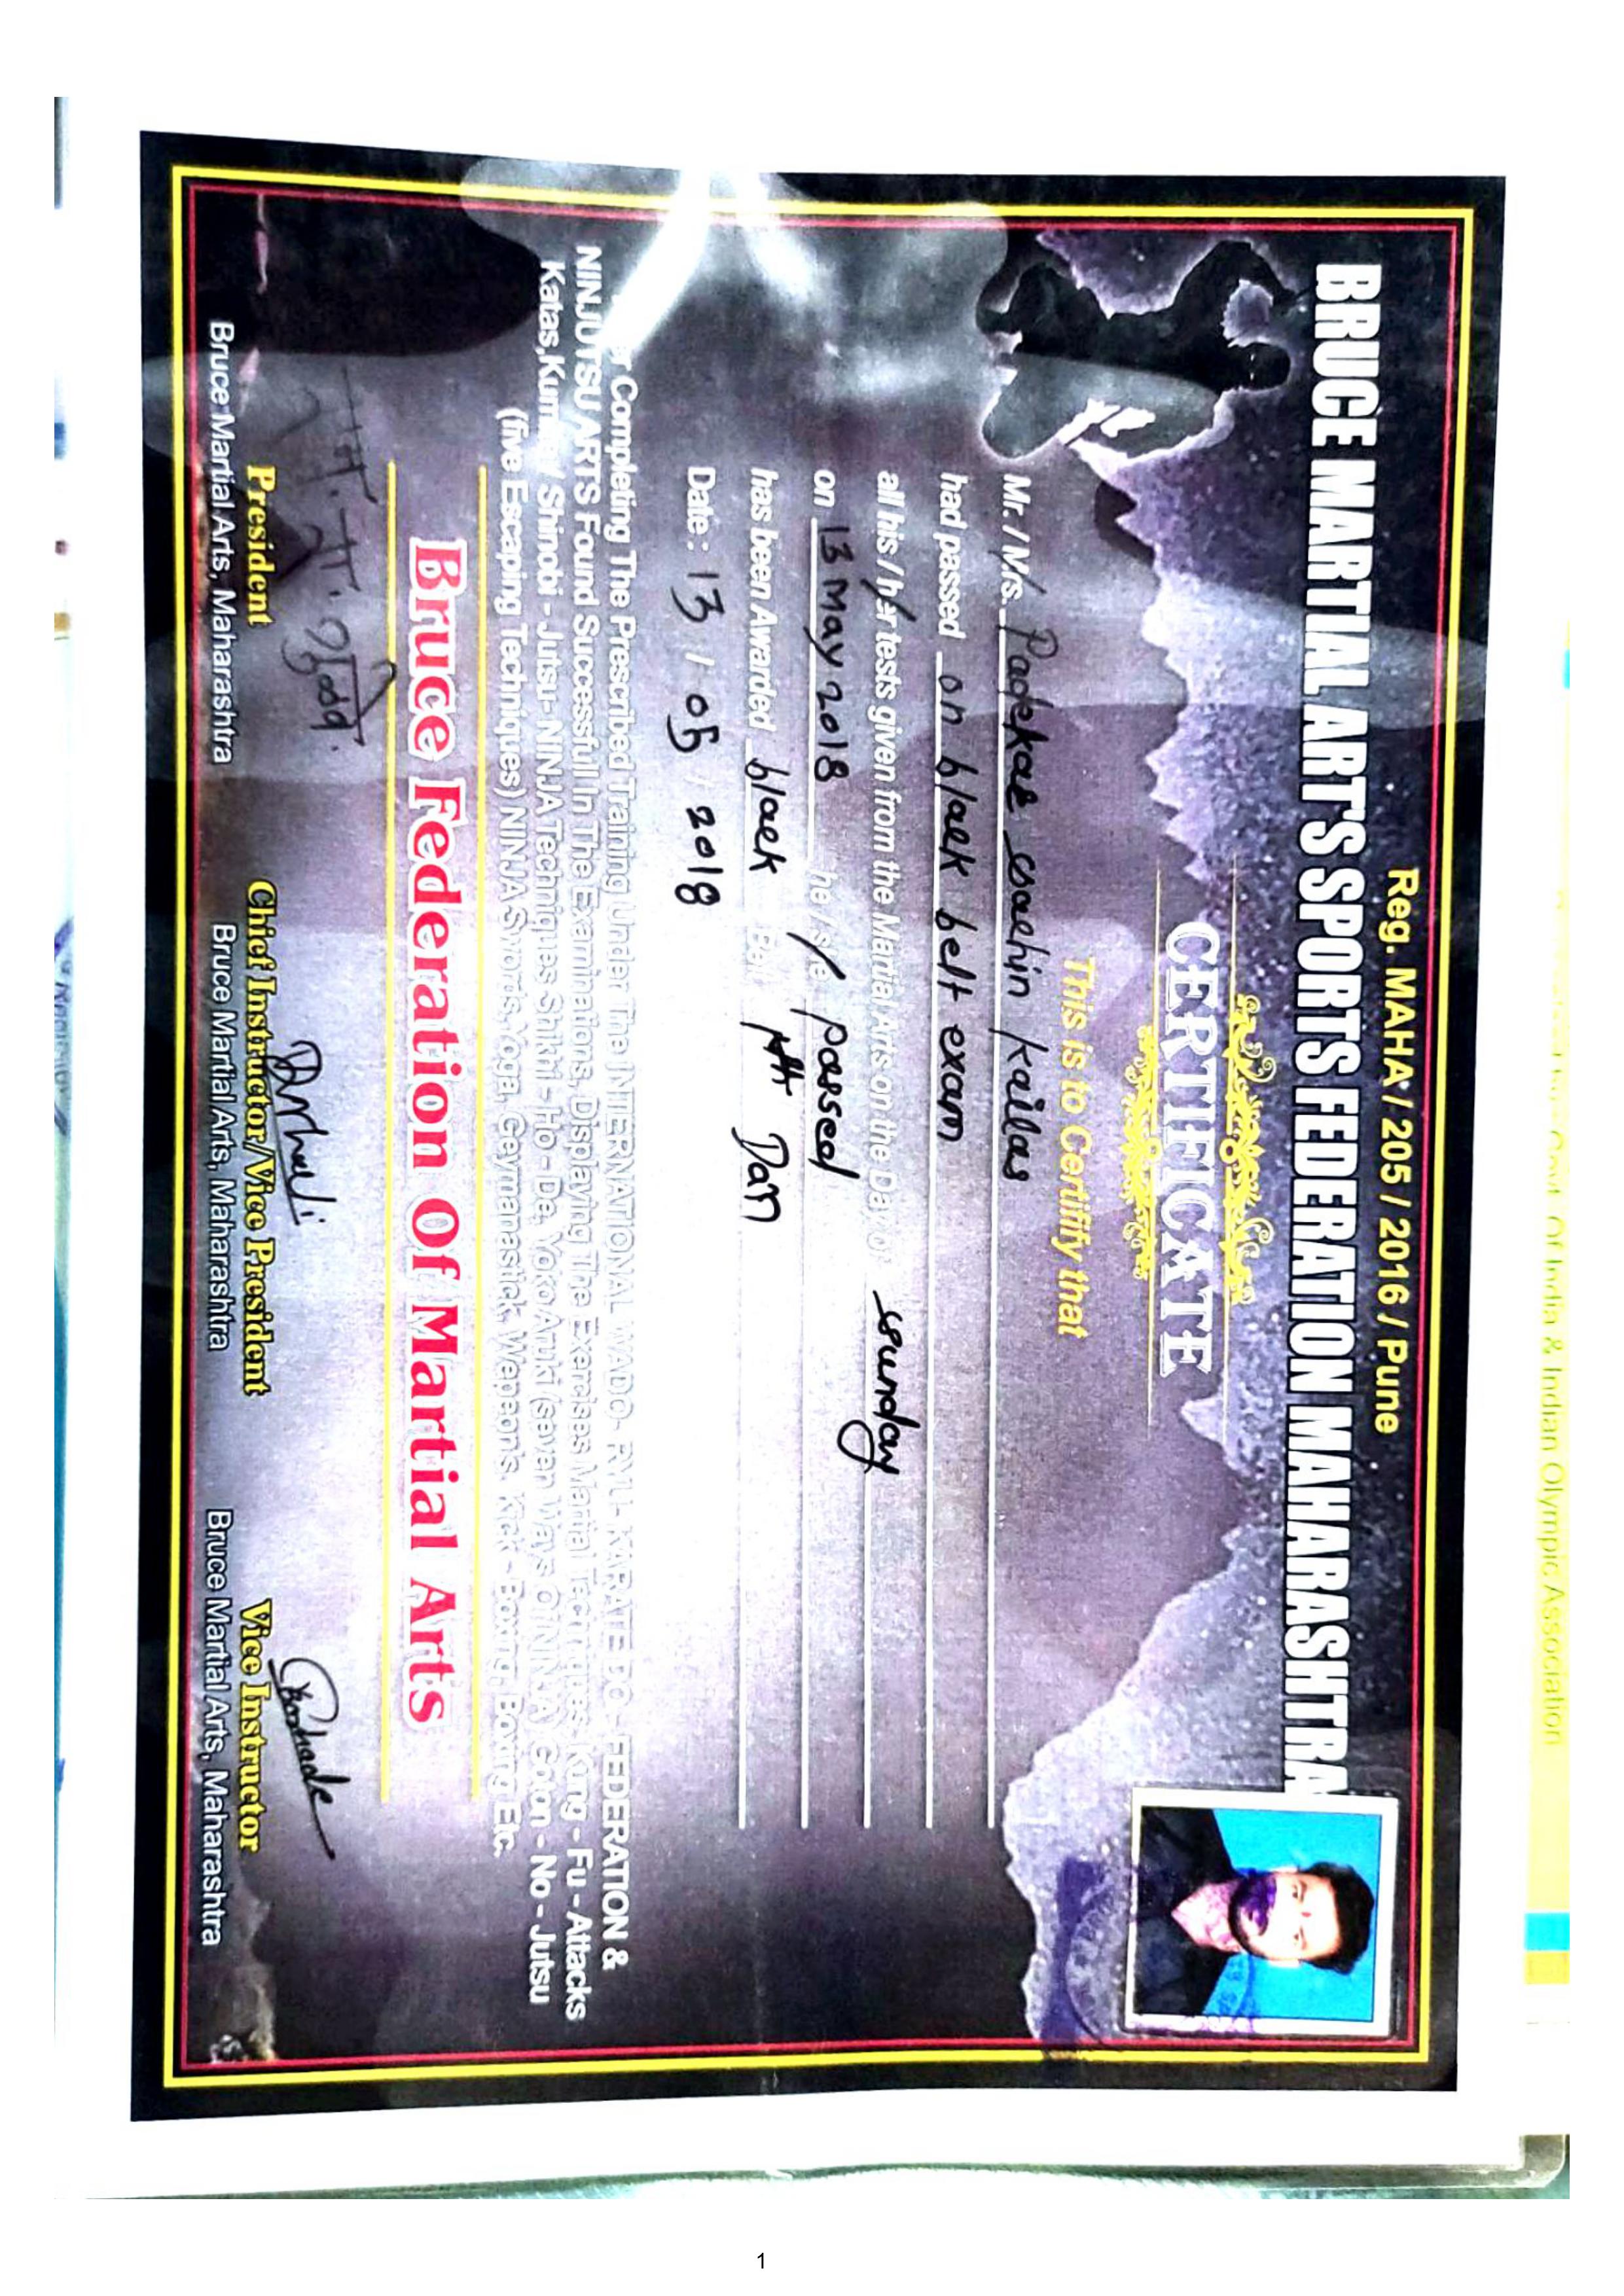 Govt. Of India & Indian Olympic Association
Reg. MAHA / 205 / 2016 / Pune
BRUCE MARTIAL ART'S SPORTS FEDERATION MAHARASHTRA
CERTIFICATE
This is to Certifify that
Mr. / Mrs. Padekar Sachin Kailas
had passed on black belt exam
all his / her tests given from the Martial Arts on the Day of Sunday
on 13 May 2018 he / she passed
has been Awarded black Belt Dan
Date : 13 / 05 / 2018
Completing The Prescribed Training Under The INTERNATIONAL WADO- RYU- KARATE DO - FEDERATION &
NINJUTSU ARTS Found Successfull In The Examinations, Displaying The Exercises Martial Techniques, Kung - Fu - Attacks
Katas, Shinobi - Jutsu- NINJA Techniques Shikhi - Ho - De, Yoko Aruki (seven Ways Of NINJA) Goton - No - Jutsu
(five Escaping Techniques) NINJA Swords,Yoga, Geymanastick, Wepeon's, Kick - Boxing, Boxing Etc.
Bruce Federation Of Martial Arts
President
Bruce Martial Arts, Maharashtra
Chief Instructor/Vice President
Bruce Martial Arts, Maharashtra
Vice Instructor
Bruce Martial Arts, Maharashtra
1